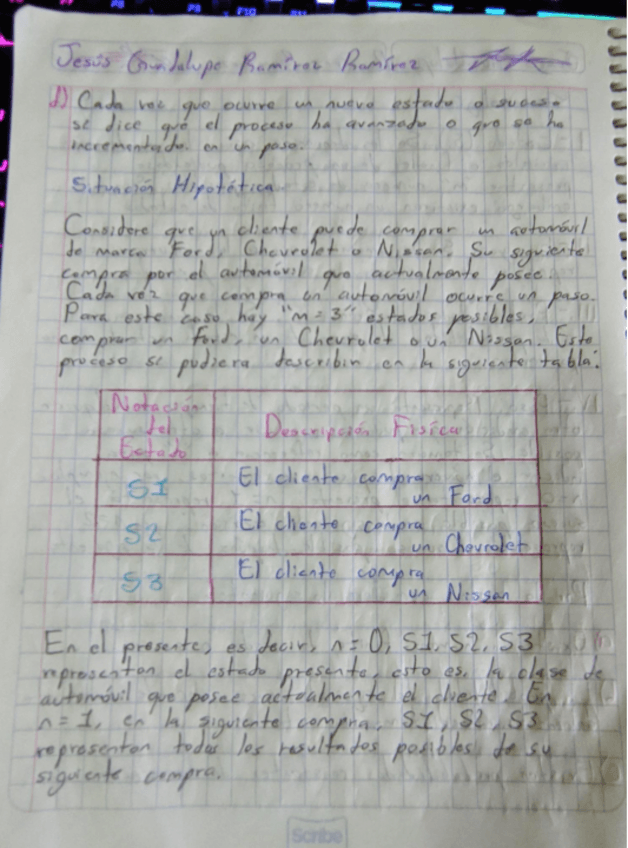 Jesús Guadalupe Ramírez Ramírez
d) Cada vez que ocurre un nuevo estado o suceso
se dice que el proceso ha avanzado o que se ha
incrementado en un paso.
Situación Hipotética
Considere que un cliente puede comprar un automóvil
de marca Ford, Chevrolet o Nissan. Su siguiente
compra por el automóvil que actualmente posee.
Cada vez que compra un automóvil ocurre un paso.
Para este caso hay "m = 3" estados posibles,
comprar un Ford, un Chevrolet o un Nissan. Este
proceso si pudiera describin en la siguiente tabla:
Notación
del
Estado
Descripción Física
S1
El cliente compra
un Ford
S2
El cliente compra
un Chevrolet
S3
El cliente compra
un Nissan
En el presente, es decir, n = 0, S1, S2, S3
representan el estado presente, esto es, la clase de
automóvil que posee actualmente el cliente. En
n = 1, en la siguiente compra, S1, S2, S3
representan todos los resultados posibles de su
siguiente compra.
Scribe